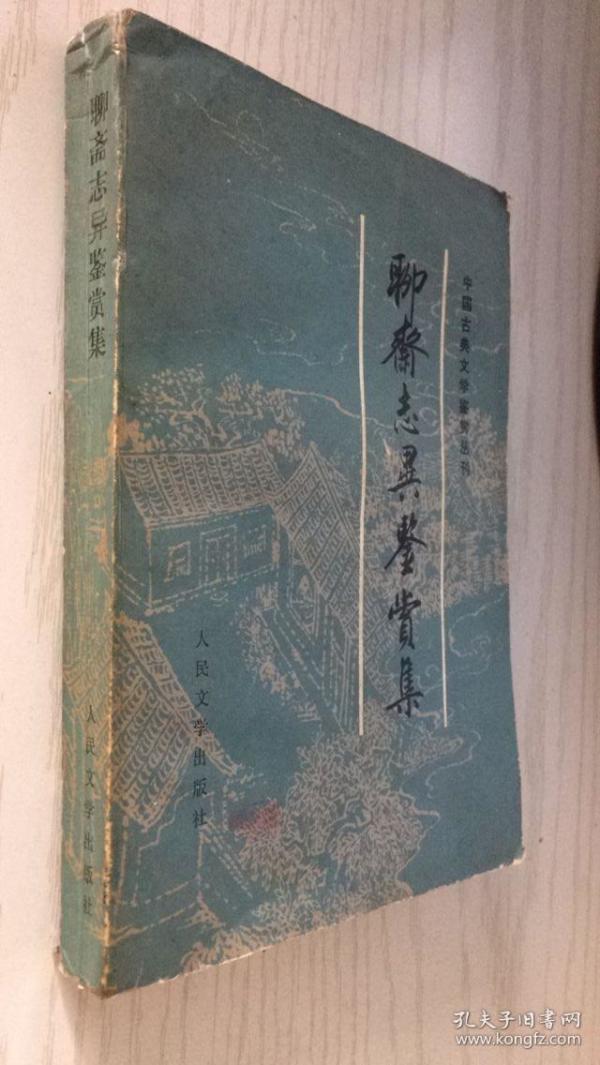 聊斋志异鉴赏集
人民文学出版社
中国古典文学鉴赏丛刊
聊齋志異鑒賞集
人民文学出版社
孔夫子旧书网
www.kongfz.com